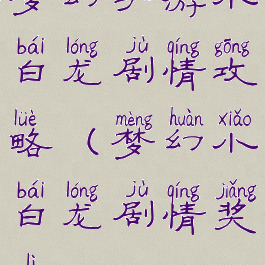 bái lóng jù qíng gōng
白 龙 剧 情 攻
lüè mèng huàn xiǎo
略 （ 梦 幻 小
bái lóng jù qíng jiǎng
白 龙 剧 情 奖
lì